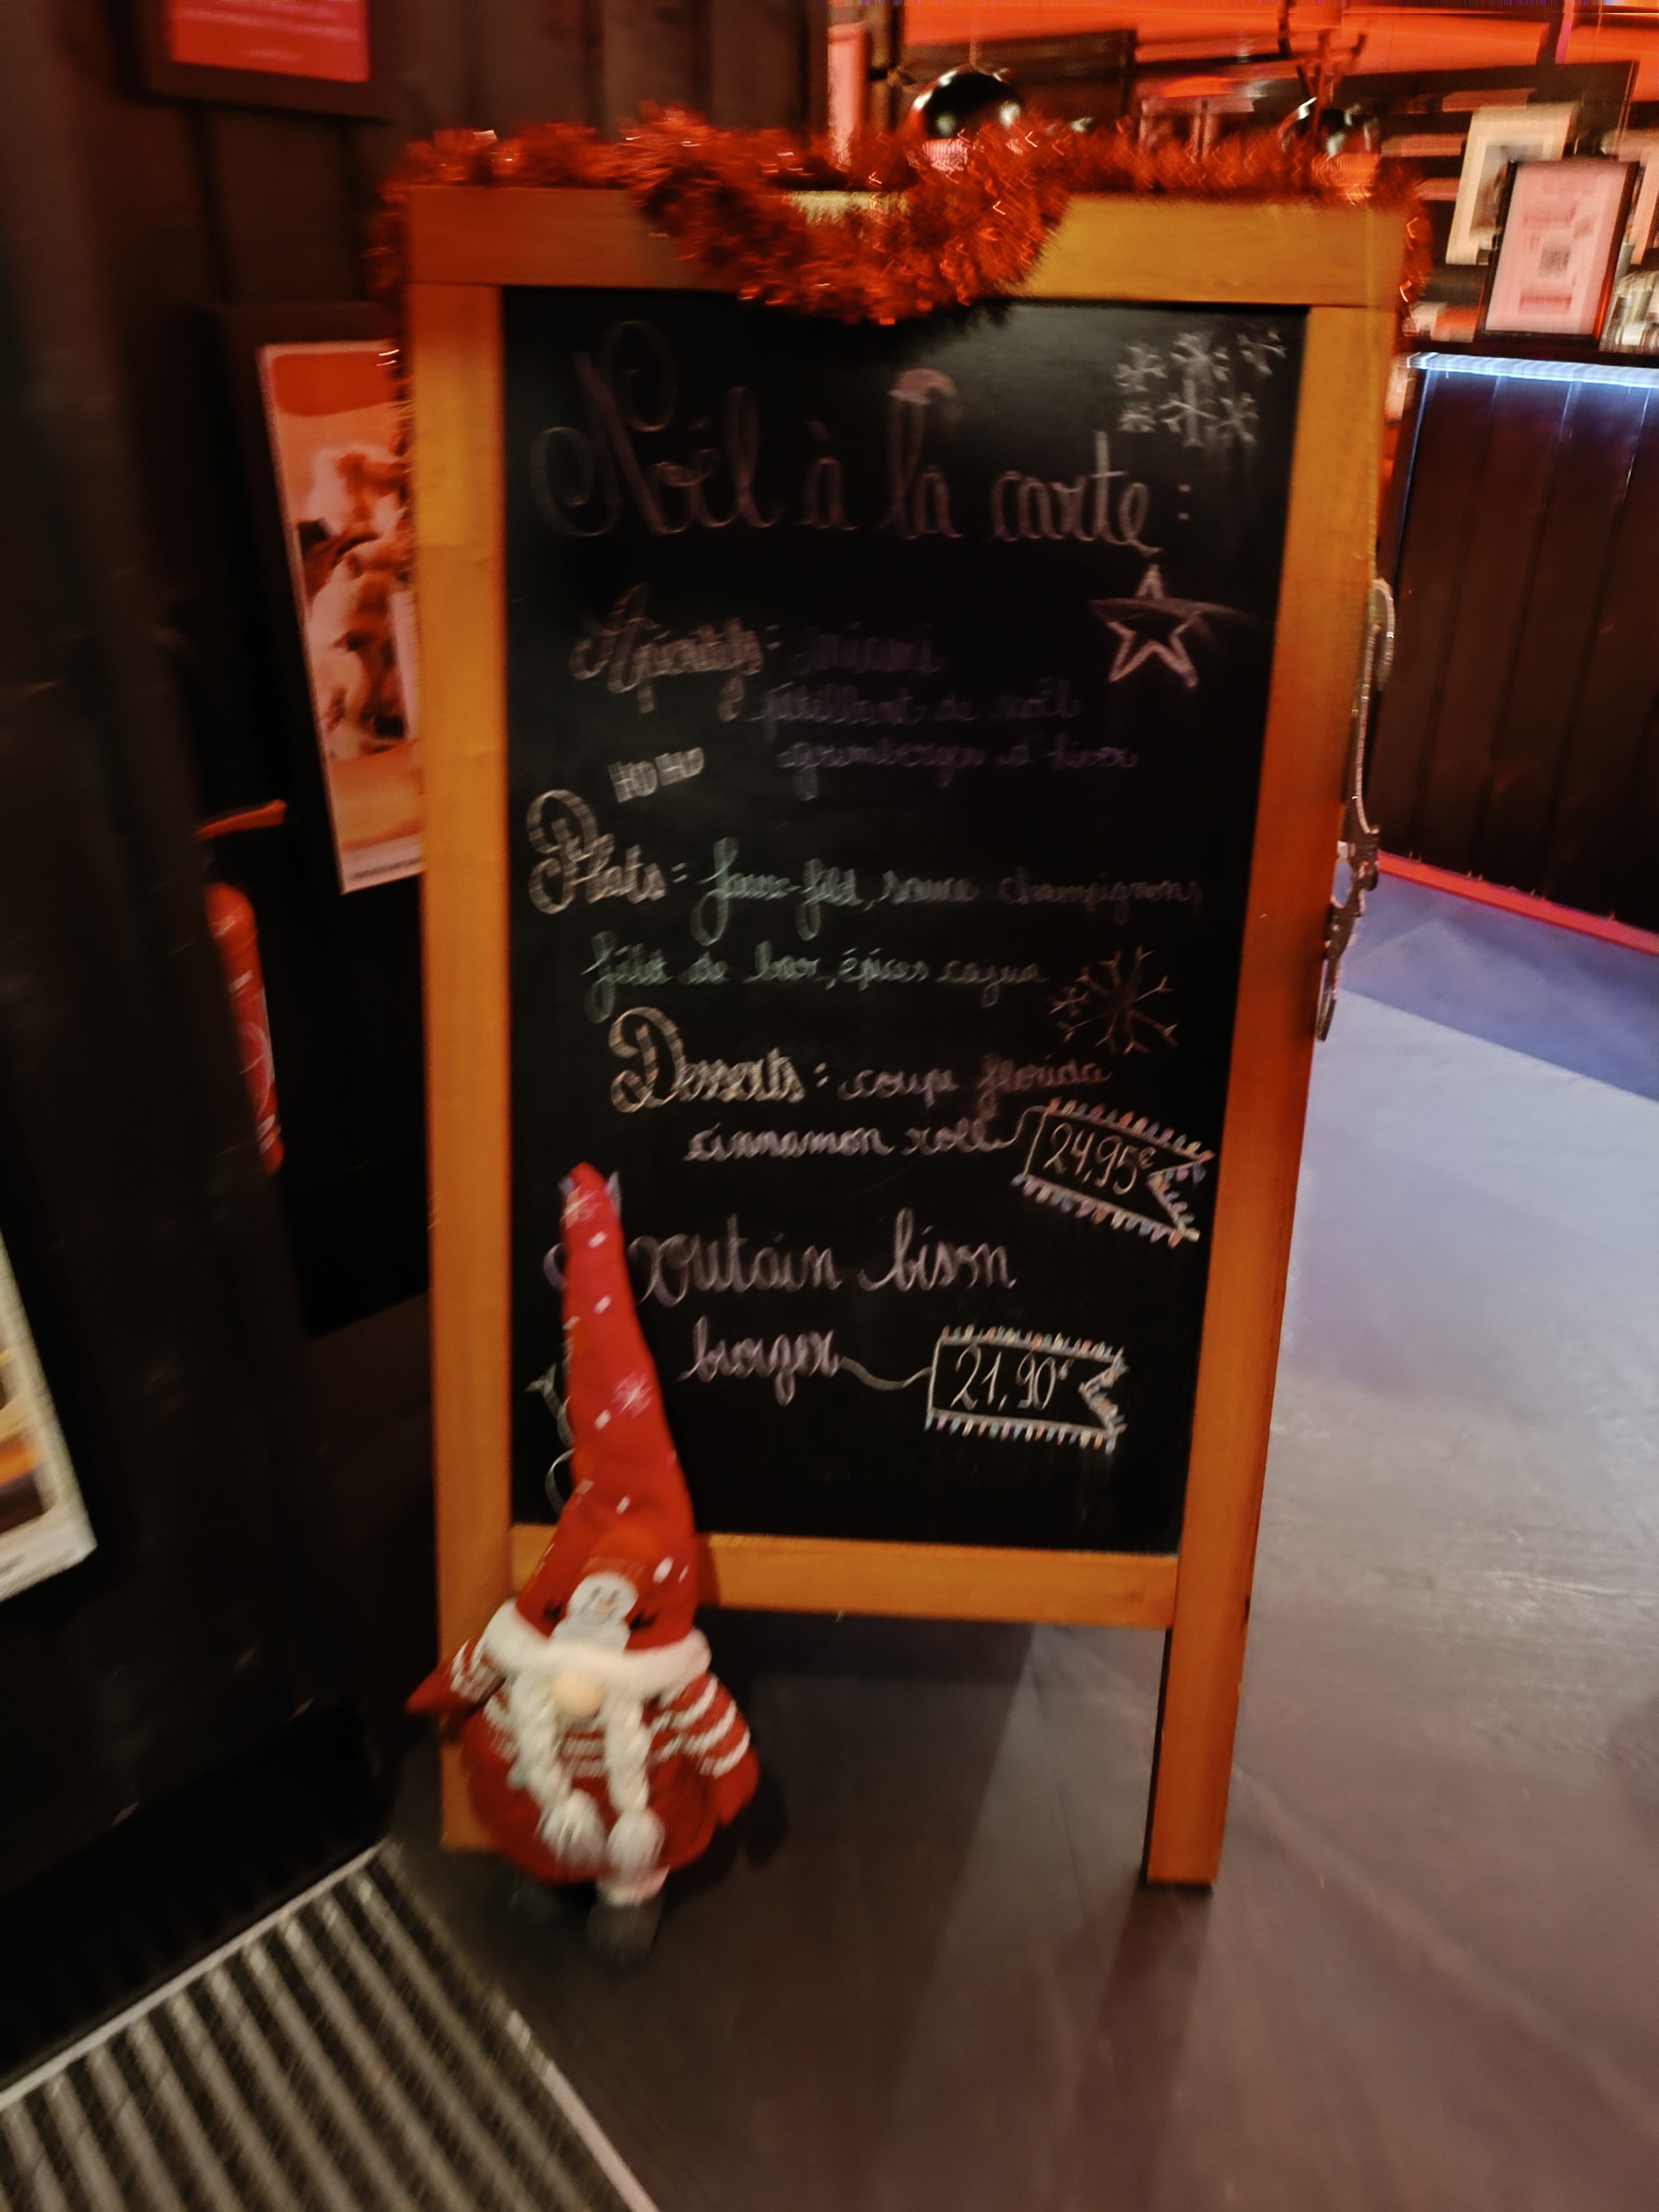 Noël à la carte :
Apéritifs : miami
pétillant de noël
HO HO
grimbergen d'hiver
Plats : faux-filet, sauce champignons
filet de bar, épices cajun
Desserts : coupe florida
cinnamon roll
24,95€
outain bison
burger
21,90€